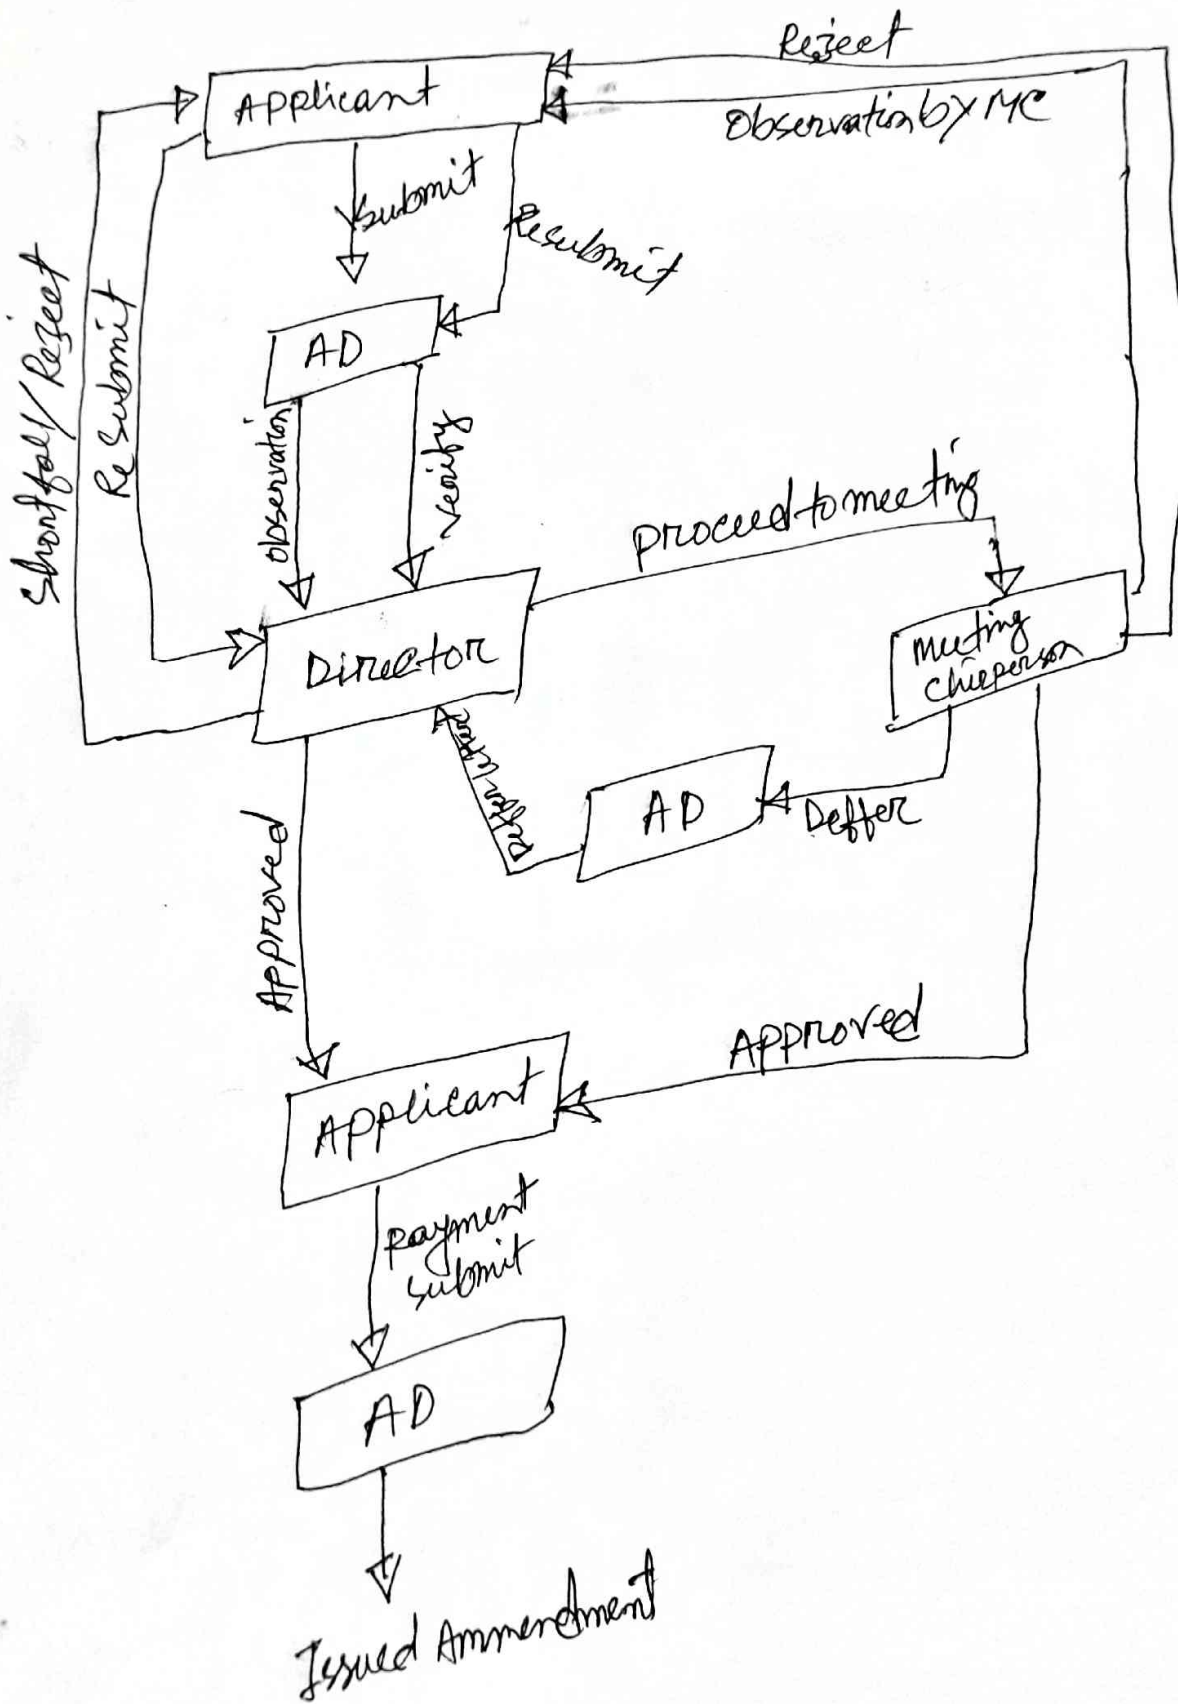 Reject
Applicant
Observation by MC
Submit
Resubmit
Shortfall/Reject
Re Submit
AD
Observation
Verify
proceed to meeting
Director
Meeting
Chieperson
AD
Deffer
Approved
Approved
Applicant
Payment
Submit
AD
Issued Ammendment